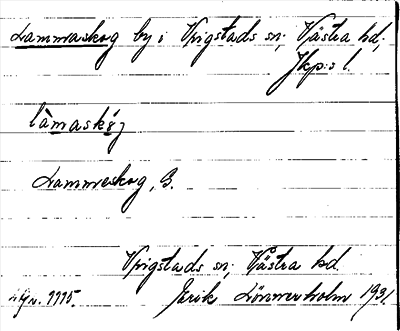 Lammaskog by i Vrigstads sn; Västra hd;
Jkp:s l.
làmaskóg
Lammeskog, B.
Vrigstads sn; Västra hd.
Erik Lönnerholm 1931